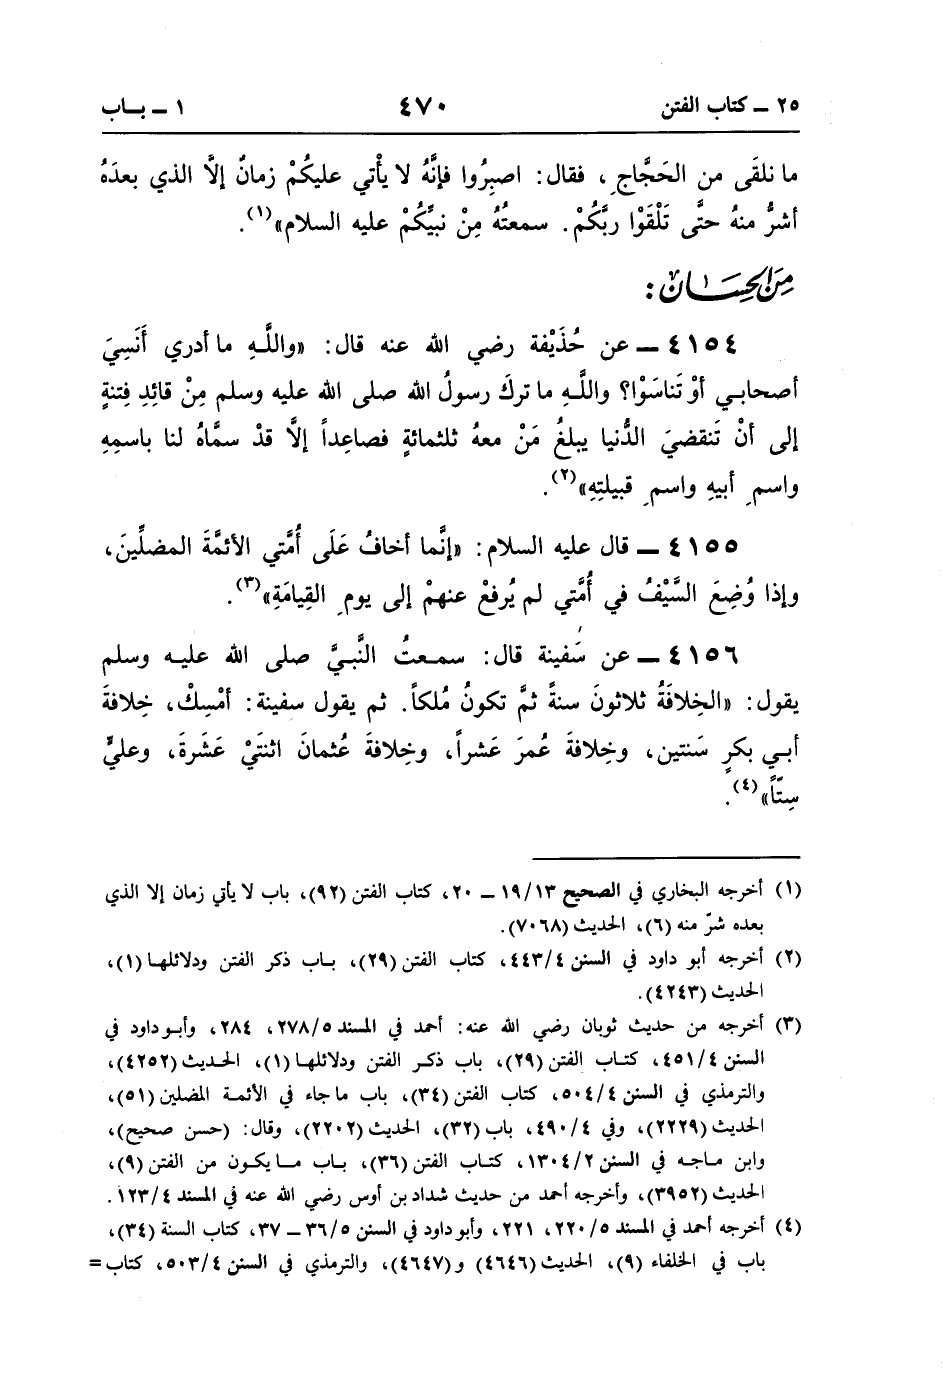 ٢٥ ــ كتاب الفتن ٤٧٠ ١ ــ بـاب
ما نلقَى من الحَجَّاجِ، فقال: اصبِرُوا فإنَّهُ لا يأْتي عليكُمْ زمانٌ إلَّا الذي بعدَهُ
أشرُّ منهُ حتَّى تَلْقَوْا ربَّكُمْ. سمعتُهُ مِنْ نبيِّكُمْ عليه السلام»(١).
مِنَ الحِسَان:
٤١٥٤ ــ عن حُذَيْفة رضي الله عنه قال: «واللَّهِ ما أدري أَنَسِيَ
أصحابي أوْ تَناسَوْا؟ واللَّهِ ما تركَ رسولُ الله صلى الله عليه وسلم مِنْ قائِدِ فِتنةٍ
إلى أنْ تَنقضيَ الدُّنيا يبلغُ مَنْ معهُ ثلثمائةٍ فصاعِداً إلَّا قدْ سمَّاهُ لنا باسمِهِ
واسمِ أبيهِ واسمِ قبيلتِهِ»(٢).
٤١٥٥ ــ قال عليه السلام: «إنَّما أخافُ عَلَى أُمَّتي الأئمَّةَ المضلِّينَ،
وإذا وُضِعَ السَّيْفُ في أُمَّتي لم يُرفعْ عنهمْ إلى يومِ القِيامَةِ»(٣).
٤١٥٦ ــ عن سَفينة قال: سمعتُ النَّبيَّ صلى الله عليه وسلم
يقول: «الخِلافَةُ ثلاثونَ سنةً ثمَّ تكونُ مُلكاً. ثم يقول سفينة: أمْسِكْ، خِلافةَ
أبي بكرٍ سَنتين، وخِلافةَ عُمرَ عَشراً، وخِلافةَ عُثمانَ اثنتَيْ عَشَرةَ، وعليٍّ
سِتّاً»(٤).
(١) أخرجه البخاري في الصحيح ١٩/١٣ ــ ٢٠، كتاب الفتن (٩٢)، باب لا يأتي زمان إلا الذي
بعده شرّ منه (٦)، الحديث (٧٠٦٨).
(٢) أخرجه أبو داود في السنن ٤٤٣/٤، كتاب الفتن (٢٩)، باب ذكر الفتن ودلائلها (١)،
الحديث (٤٢٤٣).
(٣) أخرجه من حديث ثوبان رضي الله عنه: أحمد في المسند ٢٧٨/٥، ٢٨٤، وأبو داود في
السنن ٤٥١/٤، كتاب الفتن (٢٩)، باب ذكر الفتن ودلائلها (١)، الحديث (٤٢٥٢)،
والترمذي في السنن ٥٠٤/٤، كتاب الفتن (٣٤)، باب ما جاء في الأئمة المضلين (٥١)،
الحديث (٢٢٢٩)، وفي ٤٩٠/٤، باب (٣٢)، الحديث (٢٢٠٢)، وقال: (حسن صحيح)،
وابن ماجه في السنن ١٣٠٤/٢، كتاب الفتن (٣٦)، باب ما يكون من الفتن (٩)،
الحديث (٣٩٥٢)، وأخرجه أحمد من حديث شداد بن أوس رضي الله عنه في المسند ١٢٣/٤.
(٤) أخرجه أحمد في المسند ٢٢٠/٥، ٢٢١، وأبو داود في السنن ٣٦/٥ ــ ٣٧، كتاب السنة (٣٤)،
باب في الخلفاء (٩)، الحديث (٤٦٤٦) و(٤٦٤٧)، والترمذي في السنن ٥٠٣/٤، كتاب =